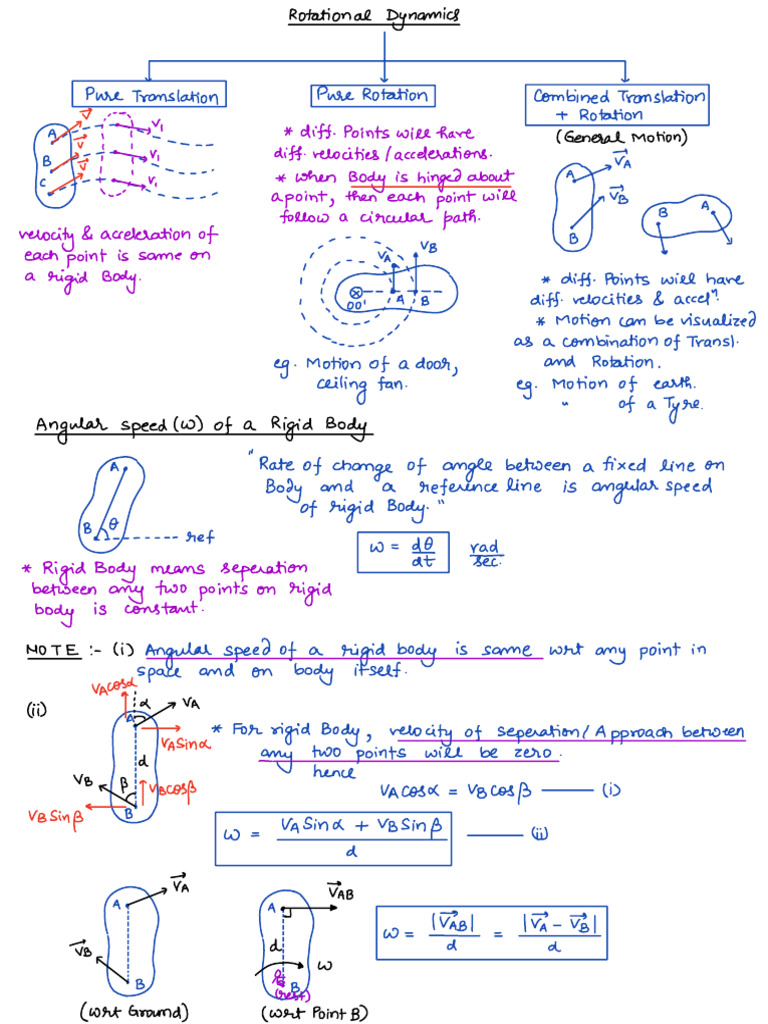 Rotational Dynamics
Pure Translation
Pure Rotation
Combined Translation
+ Rotation
(General Motion)
A
B
C
V⃗
V⃗
V⃗
V₁
V₁
V₁
velocity & acceleration of
each point is same on
a rigid Body.
* diff. Points will have
diff. velocities/accelerations.
* when Body is hinged about
a point, then each point will
follow a circular path.
V_A
V_B
A
B
eg. Motion of a door,
ceiling fan.
A
V⃗_A
V⃗_B
B
B
A
* diff. Points will have
diff. velocities & accelⁿ.
* Motion can be visualized
as a combination of Transl.
and Rotation.
eg. Motion of earth.
" of a Tyre.
Angular speed (ω) of a Rigid Body
A
B
θ
ref
"Rate of change of angle between a fixed line on
Body and a reference line is angular speed
of rigid Body."
ω = dθ/dt rad/sec.
* Rigid Body means seperation
between any two points on rigid
body is constant.
NOTE :- (i) Angular speed of a rigid body is same wrt any point in
space and on body itself.
(ii)
V_A cosα
α
V_A
A
V_A Sinα
d
V_B
β
V_B cosβ
B
V_B Sinβ
* For rigid Body, velocity of seperation/Approach between
any two points will be zero.
hence
V_A cosα = V_B cosβ —— (i)
ω = (V_A Sinα + V_B Sinβ)/d —— (ii)
A
V⃗_A
V⃗_B
B
(wrt Ground)
A
V⃗_AB
d
ω
B
(rest)
(wrt Point B)
ω = |V⃗_AB|/d = |V⃗_A − V⃗_B|/d